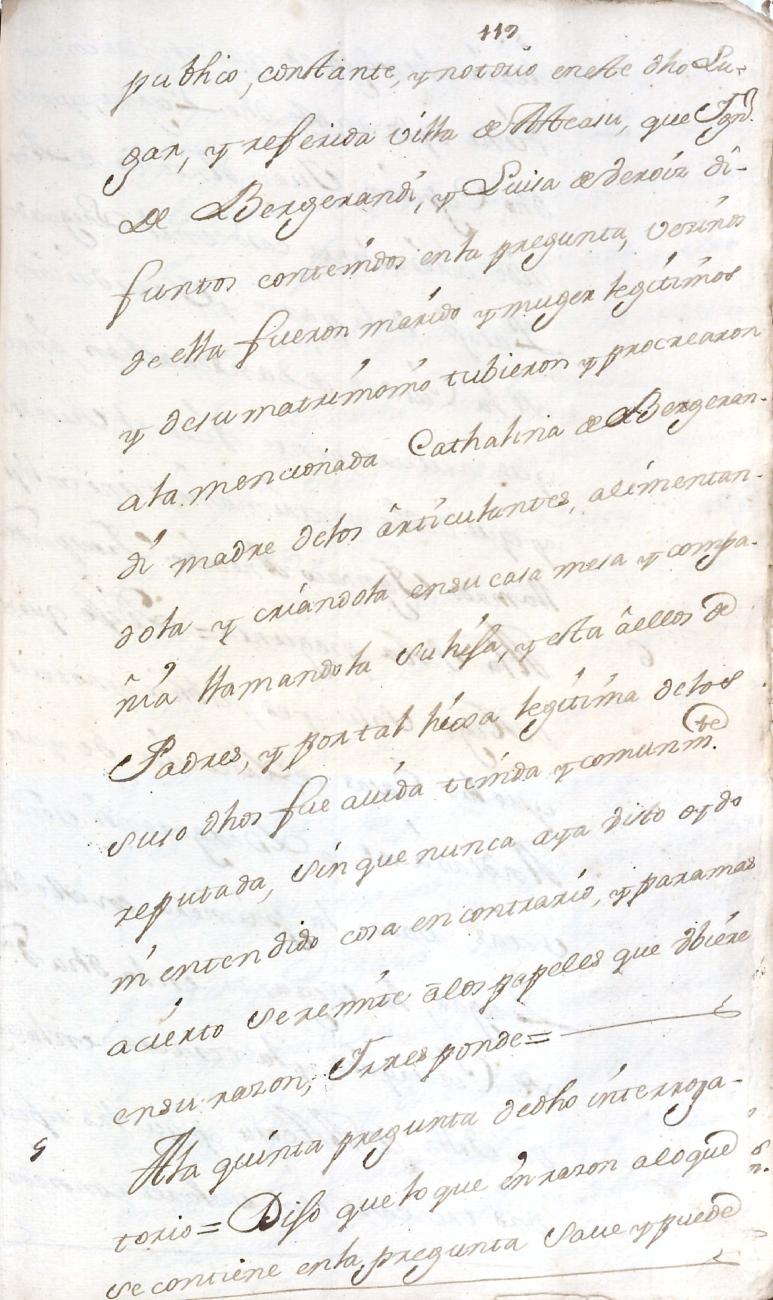 119
publico, constante, y notorio en este dho Lu-
gar, y referida villa de Atteasu, que Ign.
De Bergerandi, y Luisa de deroiz di-
funtos contenidos enla pregunta, vecinos
de ella fueron marido y muger legitimos
y desu matrimonio tubieron y procrearon
ala mencionada Cathalina de Bergeran-
di madre delos articulantes, alimentan-
dola y criandola ensu casa mesa y compa-
ñia llamandola su hija, y esta aellos de
Padres, y portal hixa legitima delos
suso dhos fue avida tenida y comunmte
reputada, sin que nunca aya visto oydo
ni entendido cosa en contrario, y paramas
acierto se remite alos papeles que ubiere
ensu razon, Y responde=
5 Ala quinta pregunta dedho interroga-
torio= Dijo que lo que enrazon alo que
se contiene enla pregunta save y puede